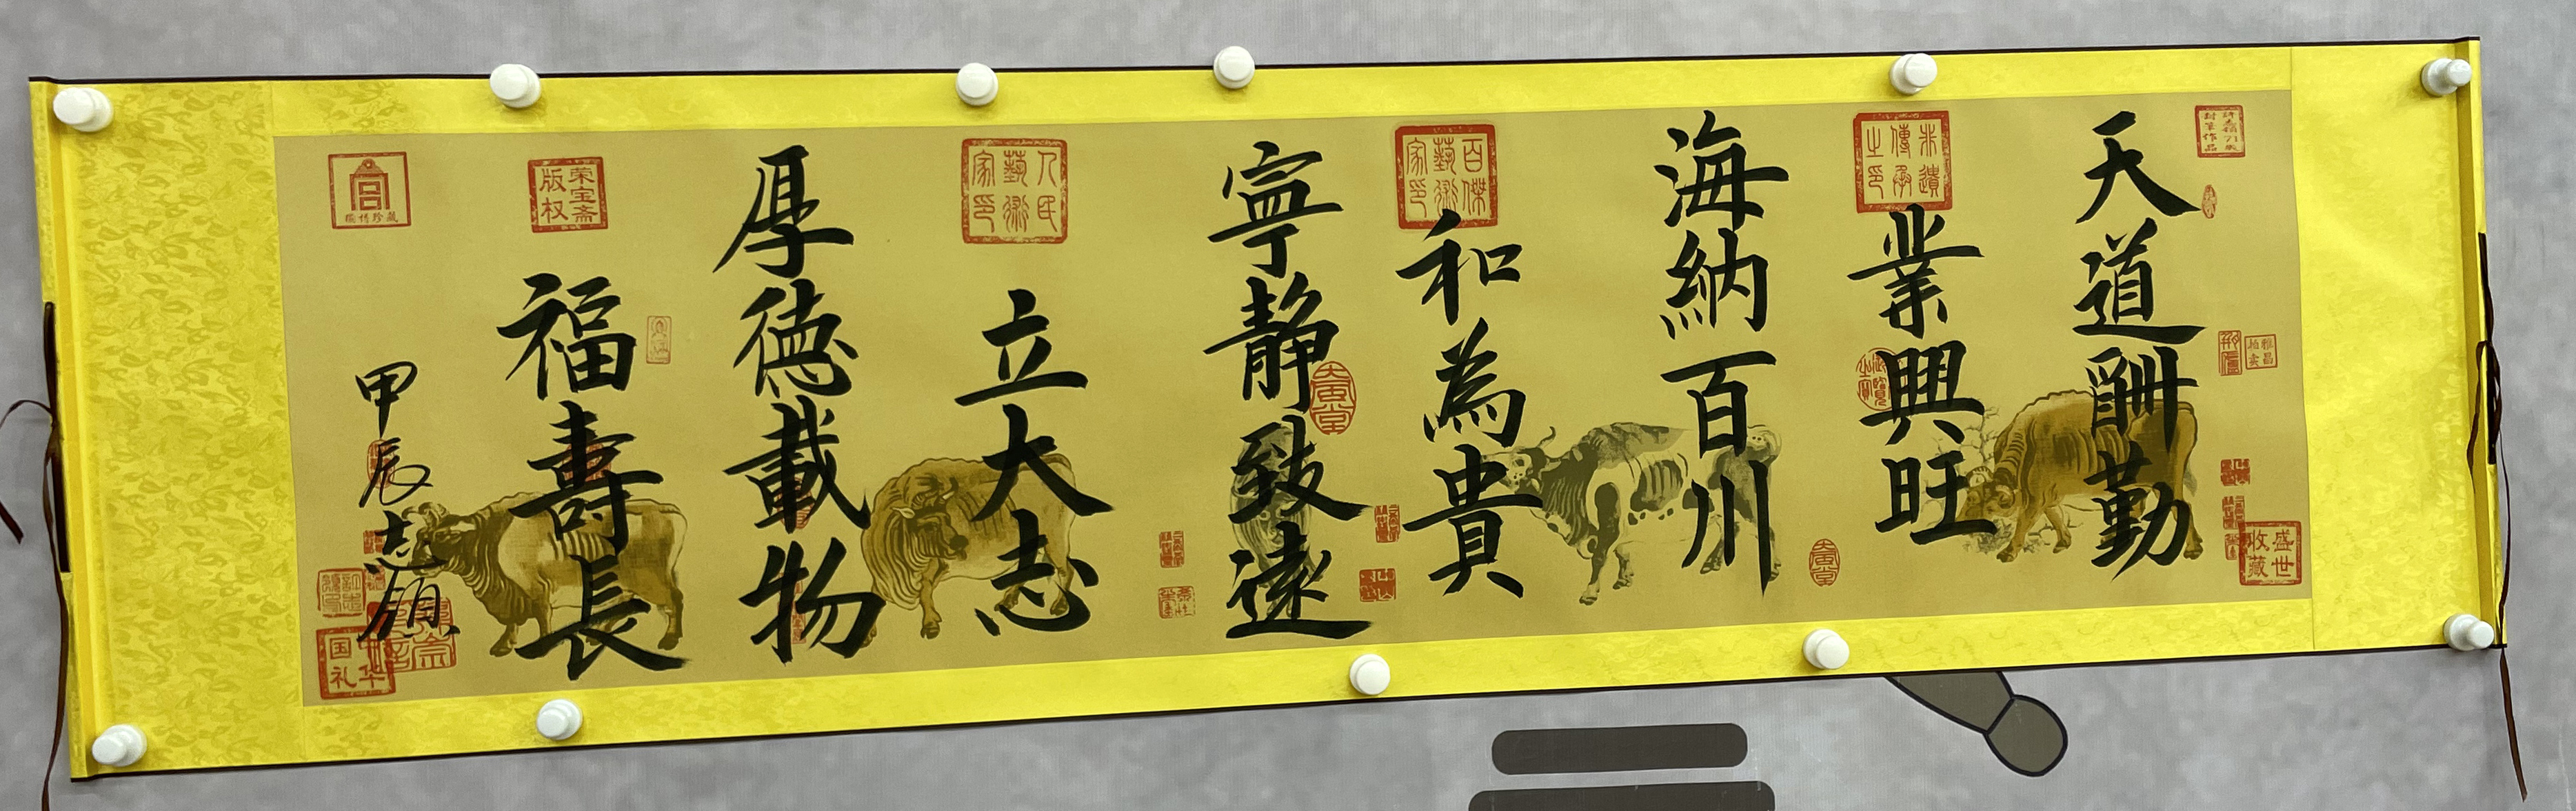 天道酬勤
業興旺
海納百川
和為貴
寧静致遠
立大志
厚德載物
福壽長
甲辰志
盛世收藏
非遺傳承之印
百傑藝術家印
人民藝術家印
荣宝斋版权
中华国礼